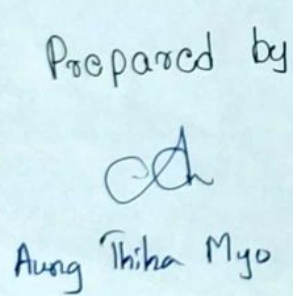 Prepared by
Aung Thiha Myo